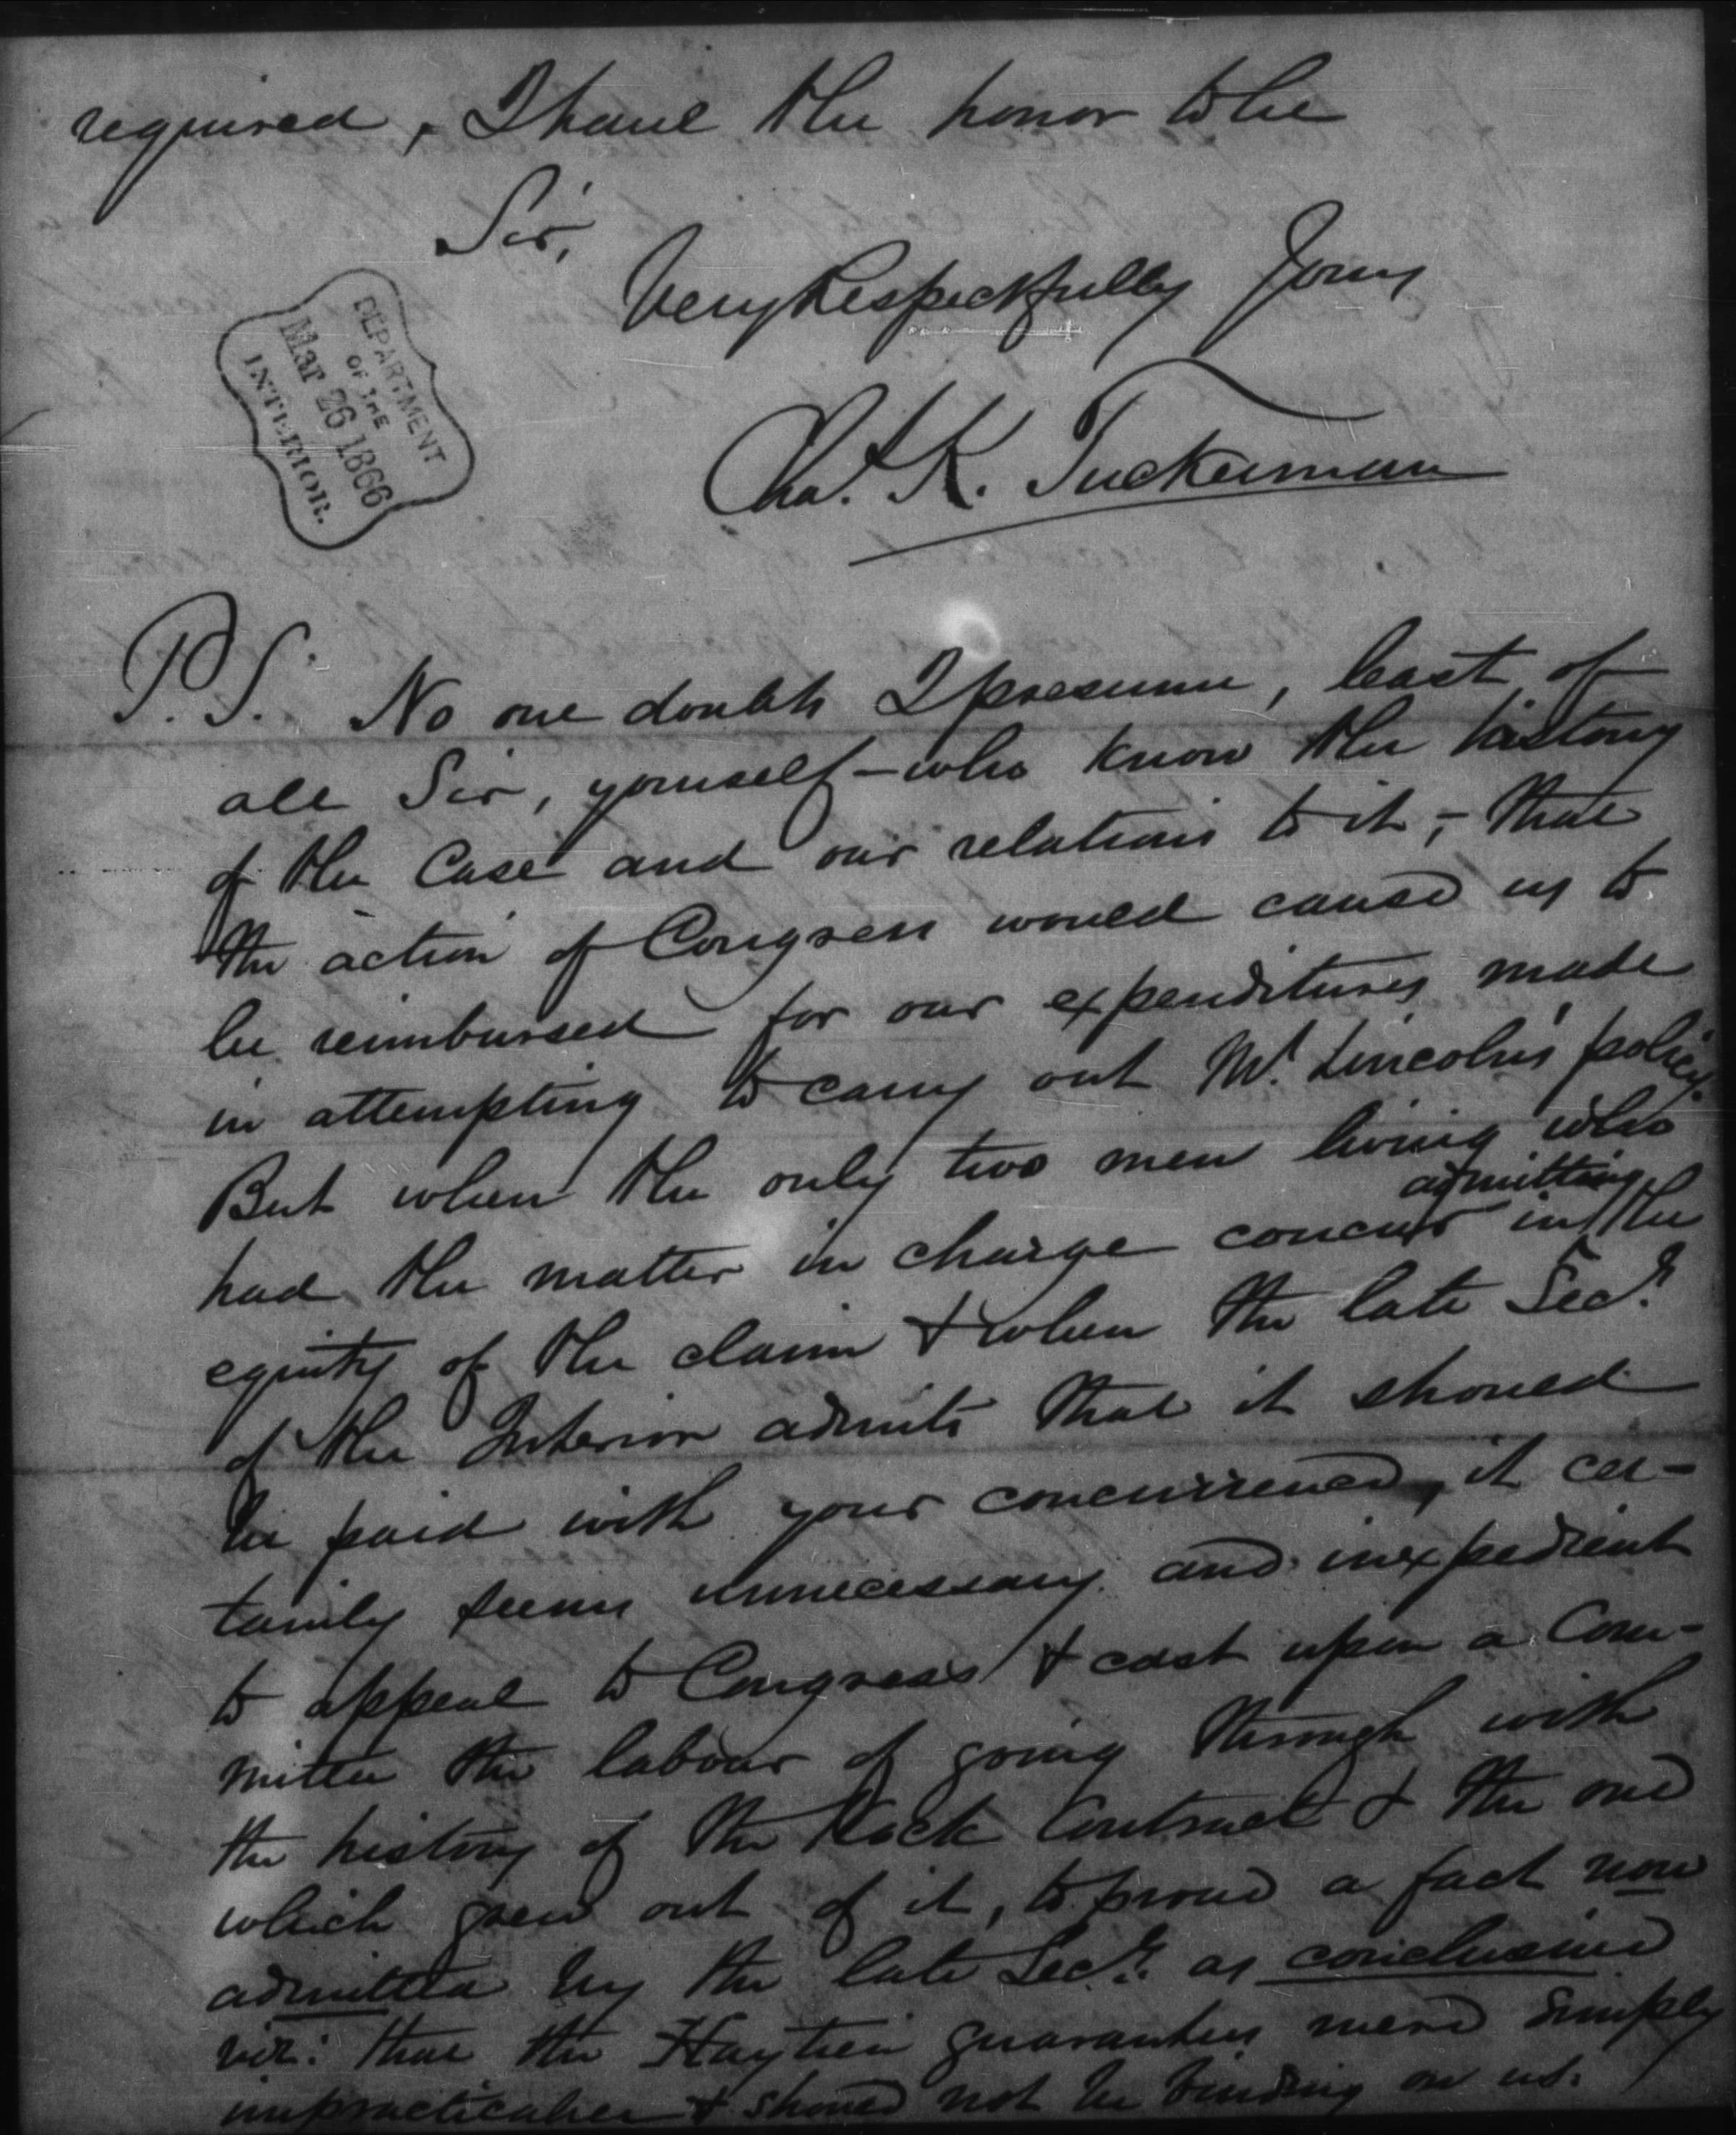 required, I have the honor to be
Sir,
Very Respectfully Yours
Cha.s K. Tuckerman
DEPARTMENT
OF THE
Mar 26 1866
INTERIOR.
P.S. No one doubts I presume, least of
all Sir, yourself – who know the history
of the Case and our relations to it, – that
the action of Congress would cause us to
be reimbursed for our expenditures made
in attempting to carry out Mr. Lincoln's policy.
But when the only two men living who
had the matter in charge concur in admitting the
equity of the claim & when the late Secy.
of the Interior admits that it should
be paid with your concurrence, it cer-
tainly seems unnecessary and inexpedient
to appeal to Congress & cast upon a Com-
mittee the labour of going through with
the history of the Kock Contract & the one
which grew out of it, to prove a fact now
admitted by the late Secy. as conclusive
viz: that the Haytien guarantees were simply
impracticable & should not be binding on us.